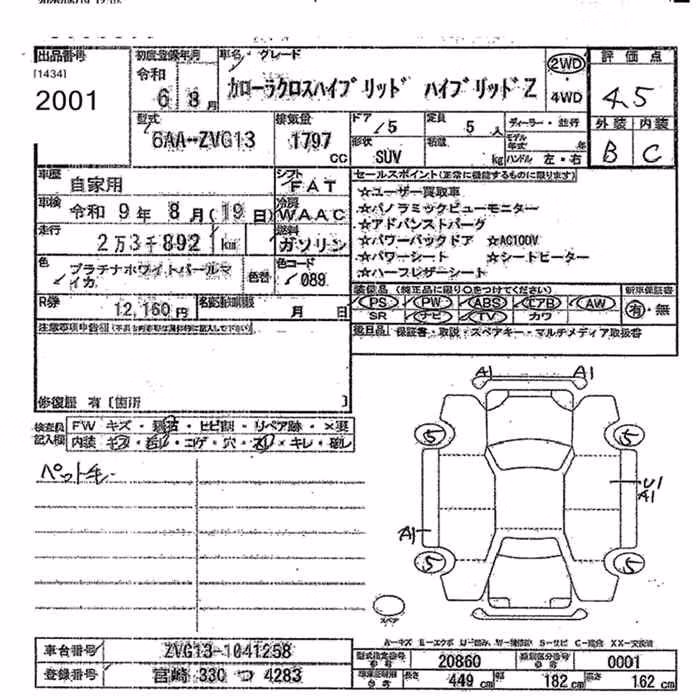 出品番号 初度登録年月 車名・グレード 評価点
[1434]
2001
令和 6年 8月
カローラクロスハイブリッド ハイブリッドZ
2WD・4WD
4.5
型式 排気量 ドア 定員 ディーラー・並行 外装 内装
6AA-ZVG13 1797cc /5 5人
形状 積載 モデル年式 年
SUV kg ハンドル 左・右
B C
車歴 自家用
シフト FAT
セールスポイント(正常に機能するものに限ります)
車検 令和 9年 8月(19日)
冷房 WAAC
☆ユーザー買取車
☆パノラミックビューモニター
☆アドバンストパーク
走行 2万3千892 km
燃料 ガソリン
☆パワーバックドア ☆AC100V
☆パワーシート ☆シートヒーター
☆ハーフレザーシート
色 プラチナホワイトパールマイカ
色替 色コード 089
装備品(純正品に限り○をつけてください) 新車保証書
PS PW ABS エアB AW
SR ナビ TV カワ
有・無
R券 12,160円 名変期限 月 日
後日品 保証書・取説・スペアキー・マルチメディア取扱書
注意事項申告欄
修復歴 有〔箇所 〕
検査員記入欄 FW キズ・ ・ヒビ割・リペア跡・×要
内装 キズ・ ・コゲ・穴・スレ・キレ・破レ
ペット毛
A1 A1
5 5
U1
A1
A1
5 5
スペア
A-キズ E-エクボ U-凹み W-補修跡 S-サビ C-腐食 XX-交換済
車台番号 ZVG13-1041258
型式指定番号 20860 類別区分番号 0001
登録番号 宮崎 330 つ 4283
長さ 449cm 幅 182cm 高さ 162cm